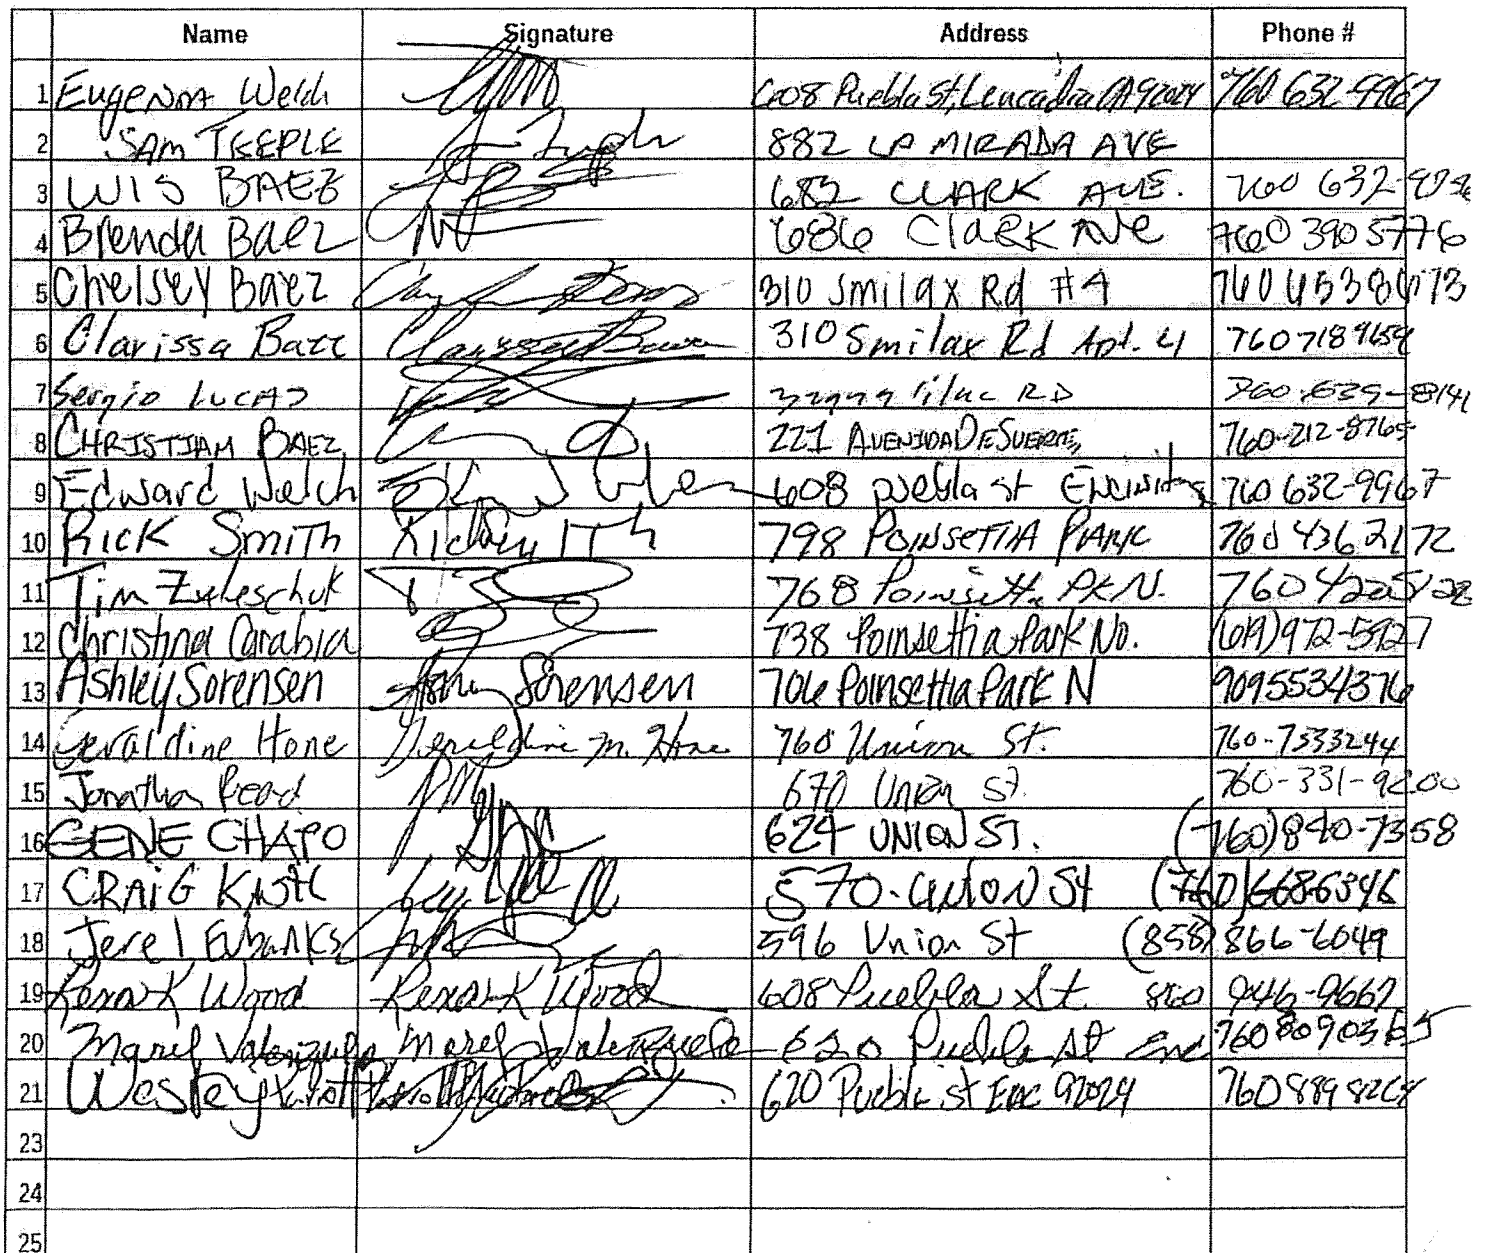 Name Signature Address Phone #
1 Eugenia Welch 608 Puebla St, Leucadia CA 92024 760 632-9967
2 SAM TEEPLE 882 LA MIRADA AVE
3 LUIS BAEZ 682 CLARK AVE. 760 632-
4 Brenda Baez 686 Clark Ave 760 390 5776
5 Chelsey Baez 310 Smilax Rd #4 760 453 8673
6 Clarissa Baez 310 Smilax Rd Apt. 4 760 718 9654
7 Sergio LUCAS RD 760-635-8141
8 CHRISTIAM BAEZ 221 AVENIDA DE SUERTE, 760-212-8765
9 Edward Welch 608 puebla st Encinitas 760 632-9967
10 Rick Smith 798 POINSETTIA PARK 760 436 2172
11 Tim 768 Poinsettia PK N.
12 Christina Carabia 738 Poinsettia Park No. (619) 972-5927
13 Ashley Sorensen Ashley Sorensen 706 Poinsettia Park N 9095534376
14 Geraldine Hone Geraldine M. Hone 760 Union St. 760-7333244
15 Jonathan Read 670 Union St. 760-331-9200
16 GENE CHAPO 624 UNION ST. (760) 840-7358
17 CRAIG 570 UNION St (760) 668-6346
18 Jerel Eubanks 596 Union St (858) 866-6049
19 K Wood K Wood 608 Puebla St. 946-9667
20 Marel Valenzuela Marel Valenzuela 620 Puebla St Enc 760 8090365
21 Wesley 620 Puebla St Enc 92024 760 889 8264
23
24
25